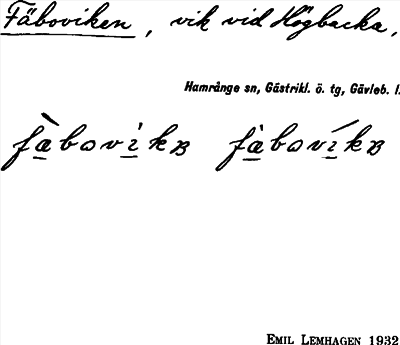 Fäboviken, vik vid Högbacka,
Hamrånge sn, Gästrikl. ö. tg, Gävleb. l.
fàbovìkʙ fàbovíkʙ
EMIL LEMHAGEN 1932